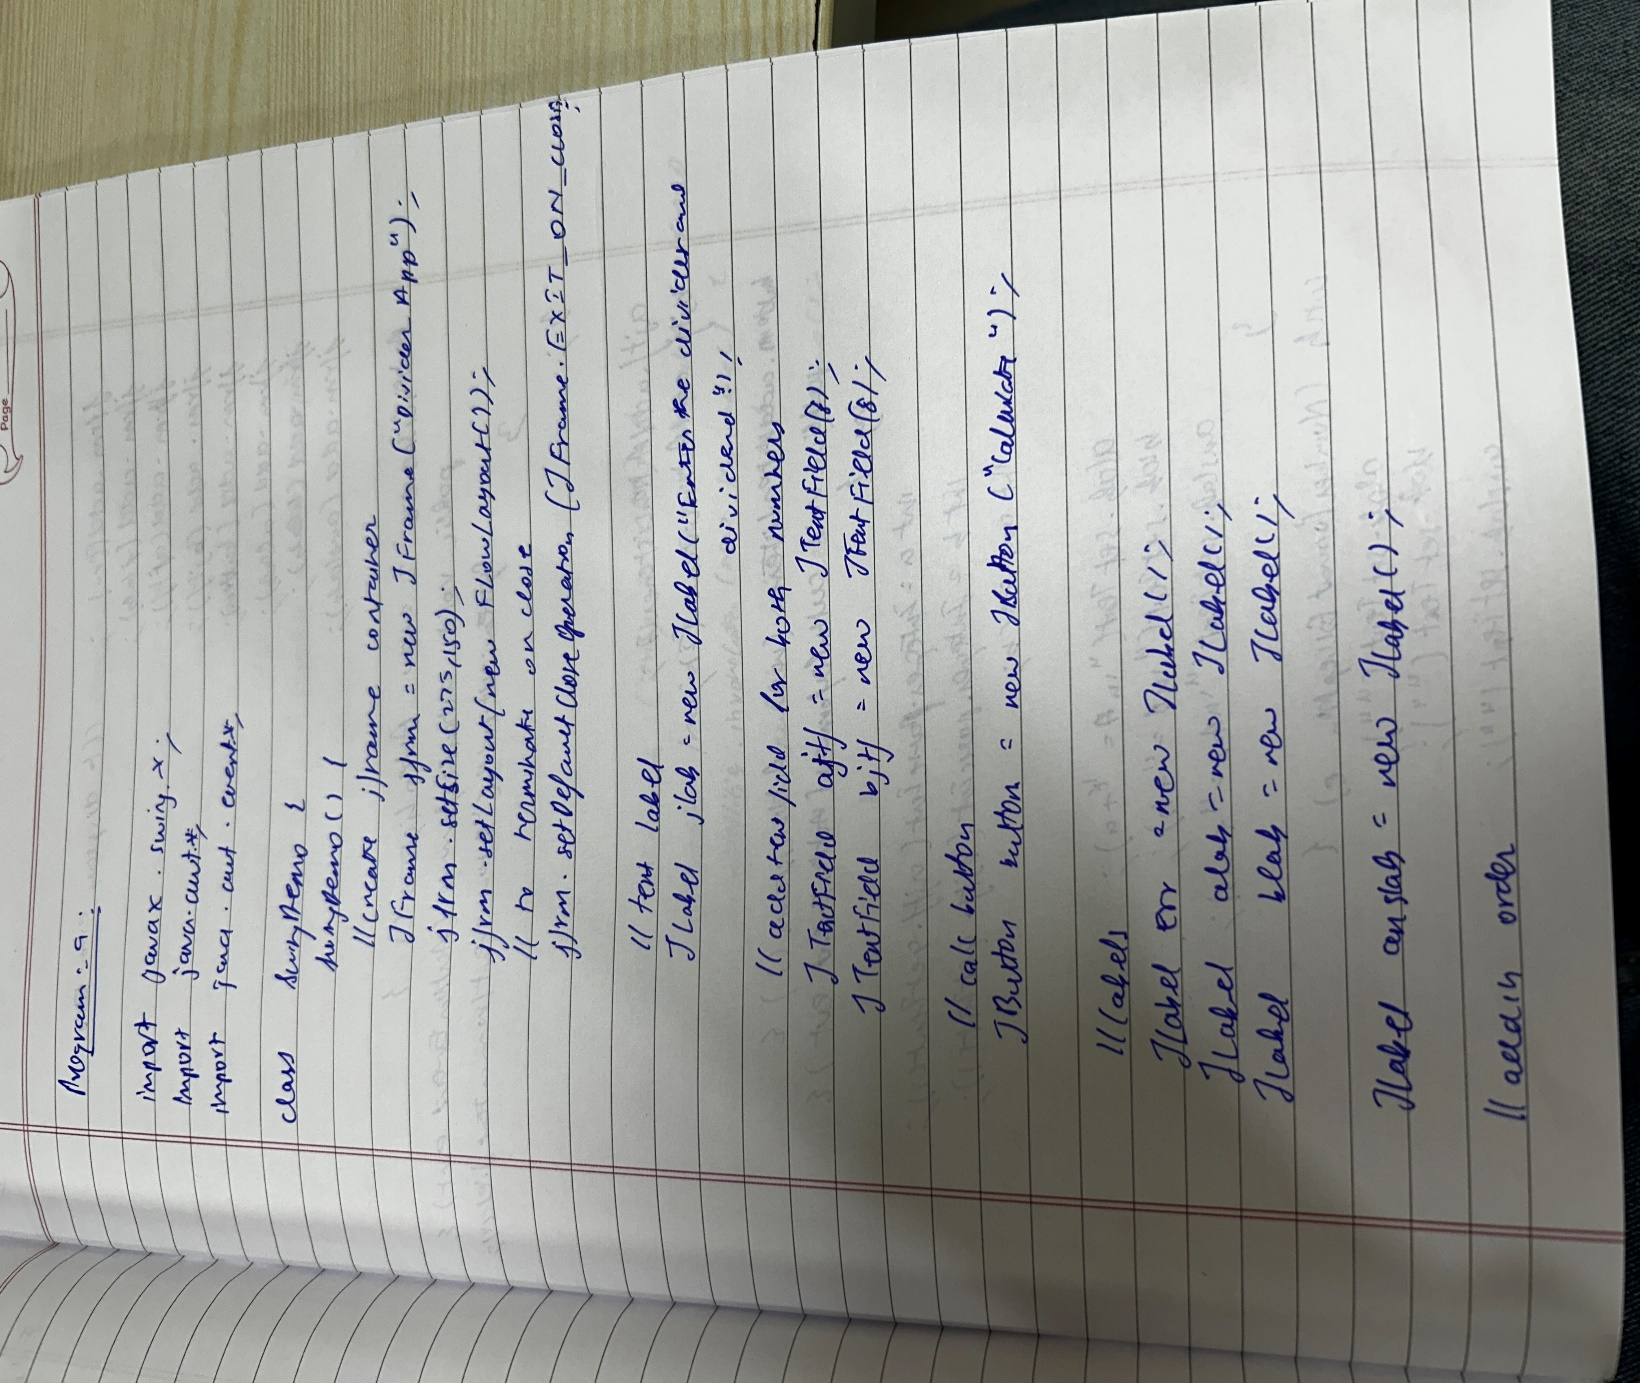 Page
Program:- 9:
import javax.swing.*;
import java.awt.*;
import java.awt.event.*;
class SwingDemo {
SwingDemo() {
//create jframe container
JFrame jfrm = new JFrame("Divider App");
jfrm.setSize(275,150);
jfrm.setLayout(new FlowLayout());
// to terminate on close
jfrm.setDefaultCloseOperation(JFrame.EXIT_ON_CLOSE);
// text label
JLabel jlab = new JLabel("Enter the divider and
dividend");
// add text field for both numbers
JTextField ajtf = new JTextField(8);
JTextField bjtf = new JTextField(8);
// calc button
JButton button = new JButton("Calculate");
//labels
JLabel err = new JLabel();
JLabel alab = new JLabel();
JLabel blab = new JLabel();
JLabel anslab = new JLabel();
// add in order